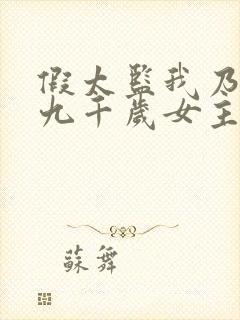 假太監我乃
九千歲女主
蘇舞